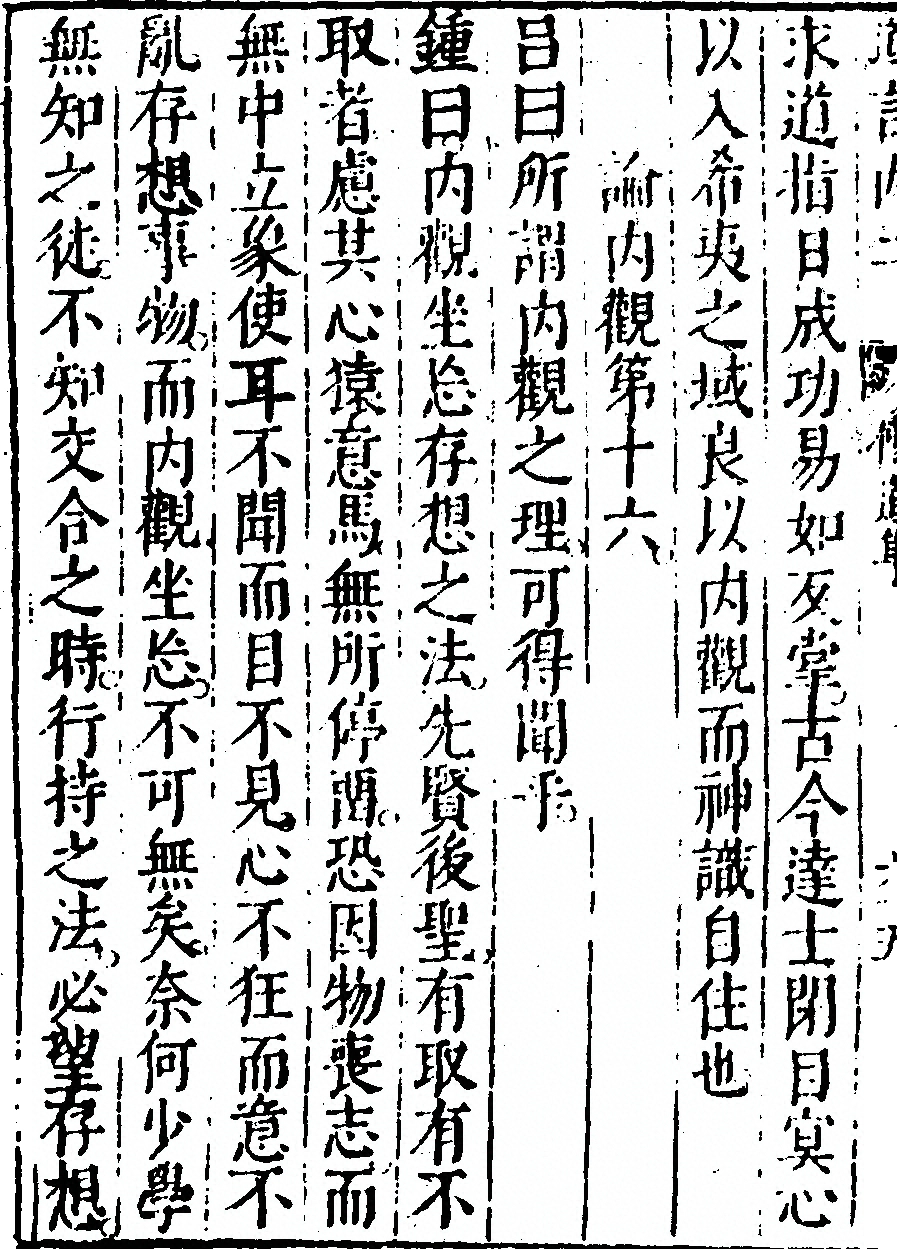 求道指日成功易如反掌古今達士閉目冥心
以入希夷之域良以内觀而神識自住也
論内觀第十六
吕曰所謂内觀之理可得聞乎
鍾曰内觀坐忘存想之法先賢後聖有取有不
取者慮其心猿意馬無所停畱恐因物喪志而
無中立象使耳不聞而目不見心不狂而意不
亂存想事物而内觀坐忘不可無矣奈何少學
無知之徒不知交合之時行持之法必望存想